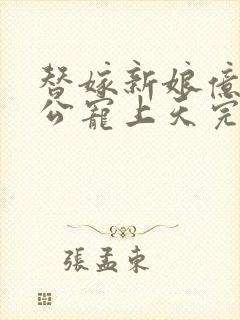 替嫁新娘億
公寵上天完
張孟東